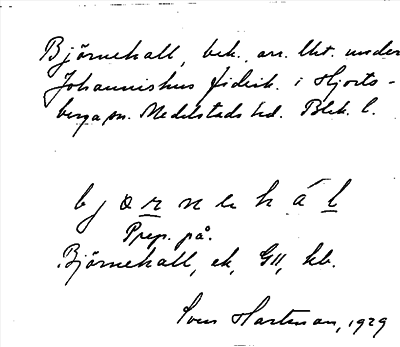 Björnekall, bek. arr. lht. under
Johannishus fideik. i Hjorts-
berga sn. Medelstads hd. Blek. l.
björnekál
Prep. på.
Björnekall, ek, GII, kb.
Sven Hartman, 1929